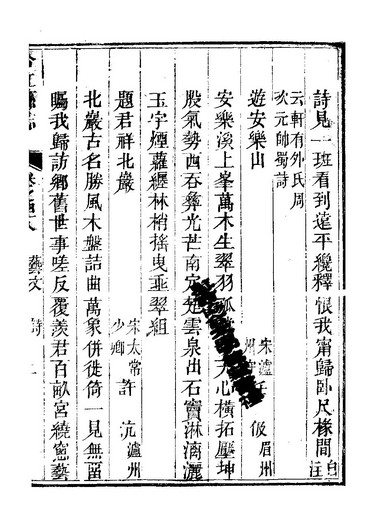 詩見一班看到蓬平纔釋恨我甯歸臥尺椽間自注
云軒有外氏周
次元帥蜀詩
遊安樂山
宋瀘 伋眉州
安樂溪上峯萬木生翠羽 天心橫拓壓坤
股氣勢西吞彝光芒南 雲泉出石竇淋漓灑
玉宇煙蘿纒林梢搖曳垂翠組
題君祥北巖
宋太常少卿許沆瀘州
北巖古名勝風木盤詰曲萬象併徙倚一見無留
矚我歸訪鄉舊世事嗟反覆羨君百畝宮繞窓藝
藝文
詩